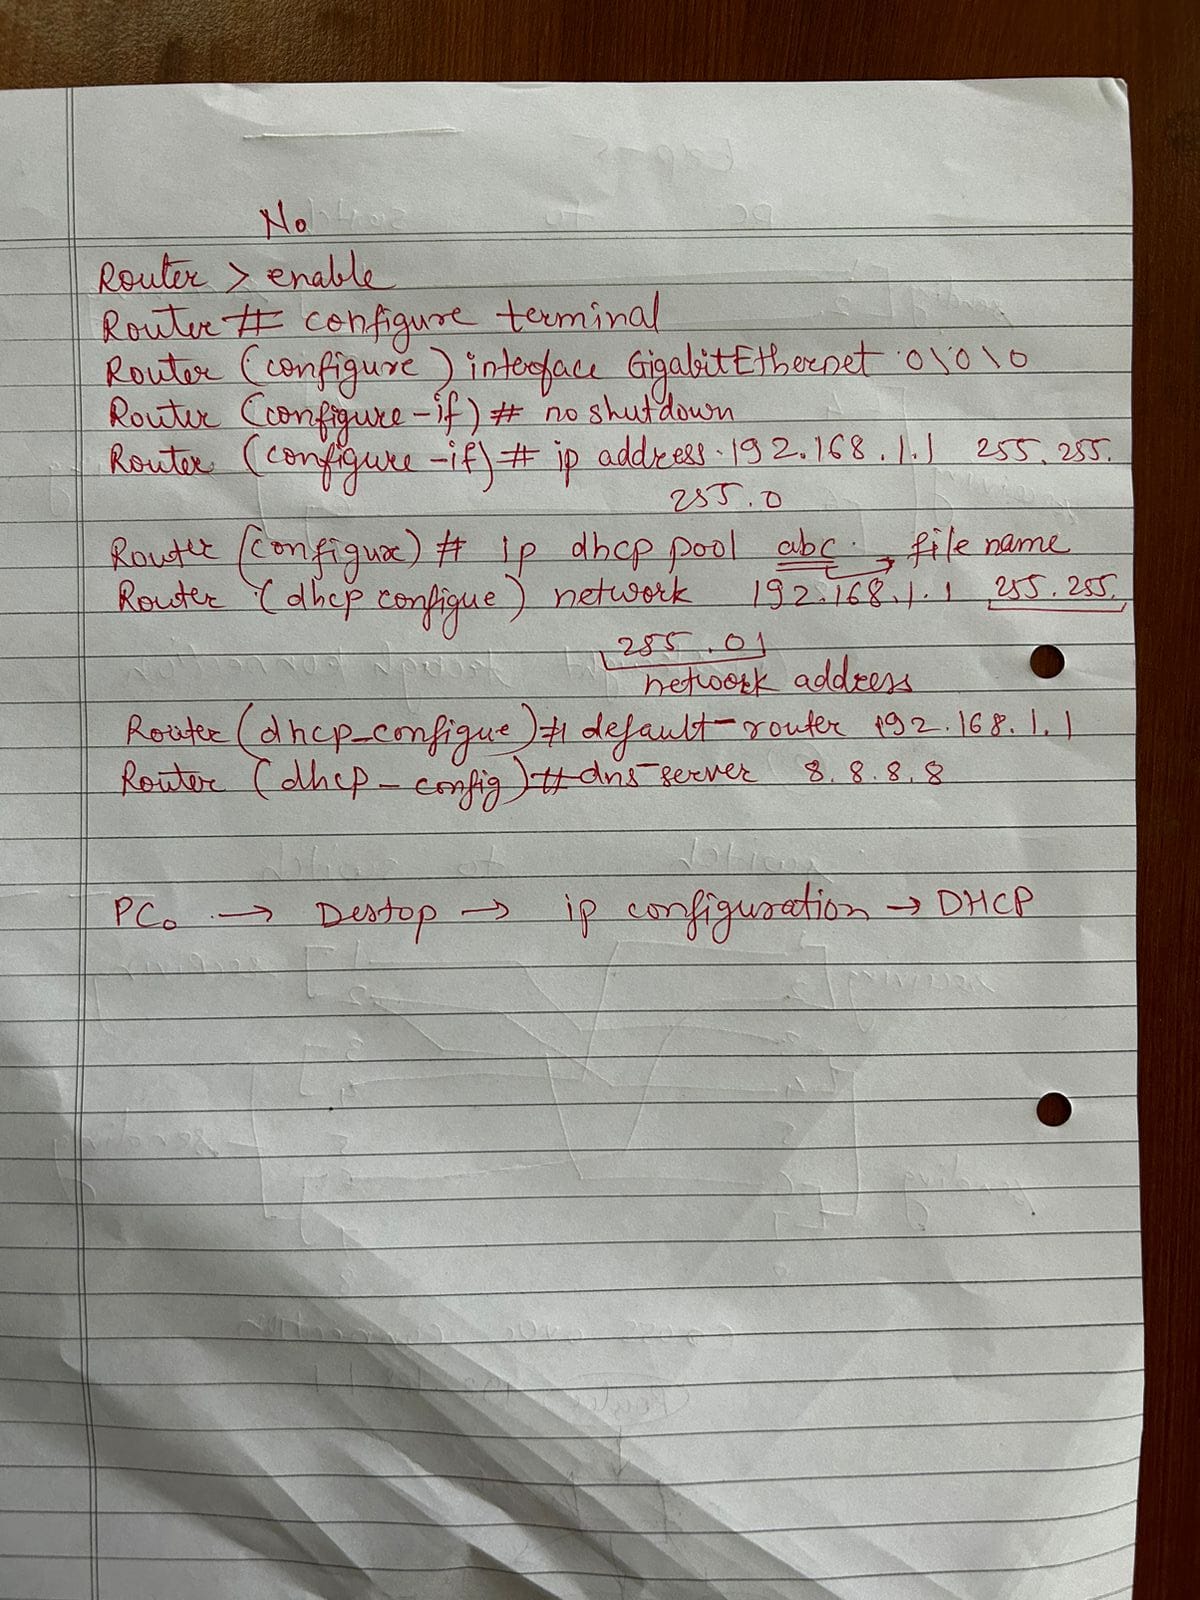 No
Router > enable
Router # configure terminal
Router (configure) interface GigabitEthernet 0\0\0
Router (configure-if) # no shutdown
Router (configure-if) # ip address 192.168.1.1 255.255.
255.0
Router (configure) # ip dhcp pool abc → file name
Router (dhcp configue) network 192.168.1.1 255.255.
255.0
network address
Router (dhcp-configue) # default-router 192.168.1.1
Router (dhcp-config) # dns-server 8.8.8.8
PC0 → Destop → ip configuration → DHCP